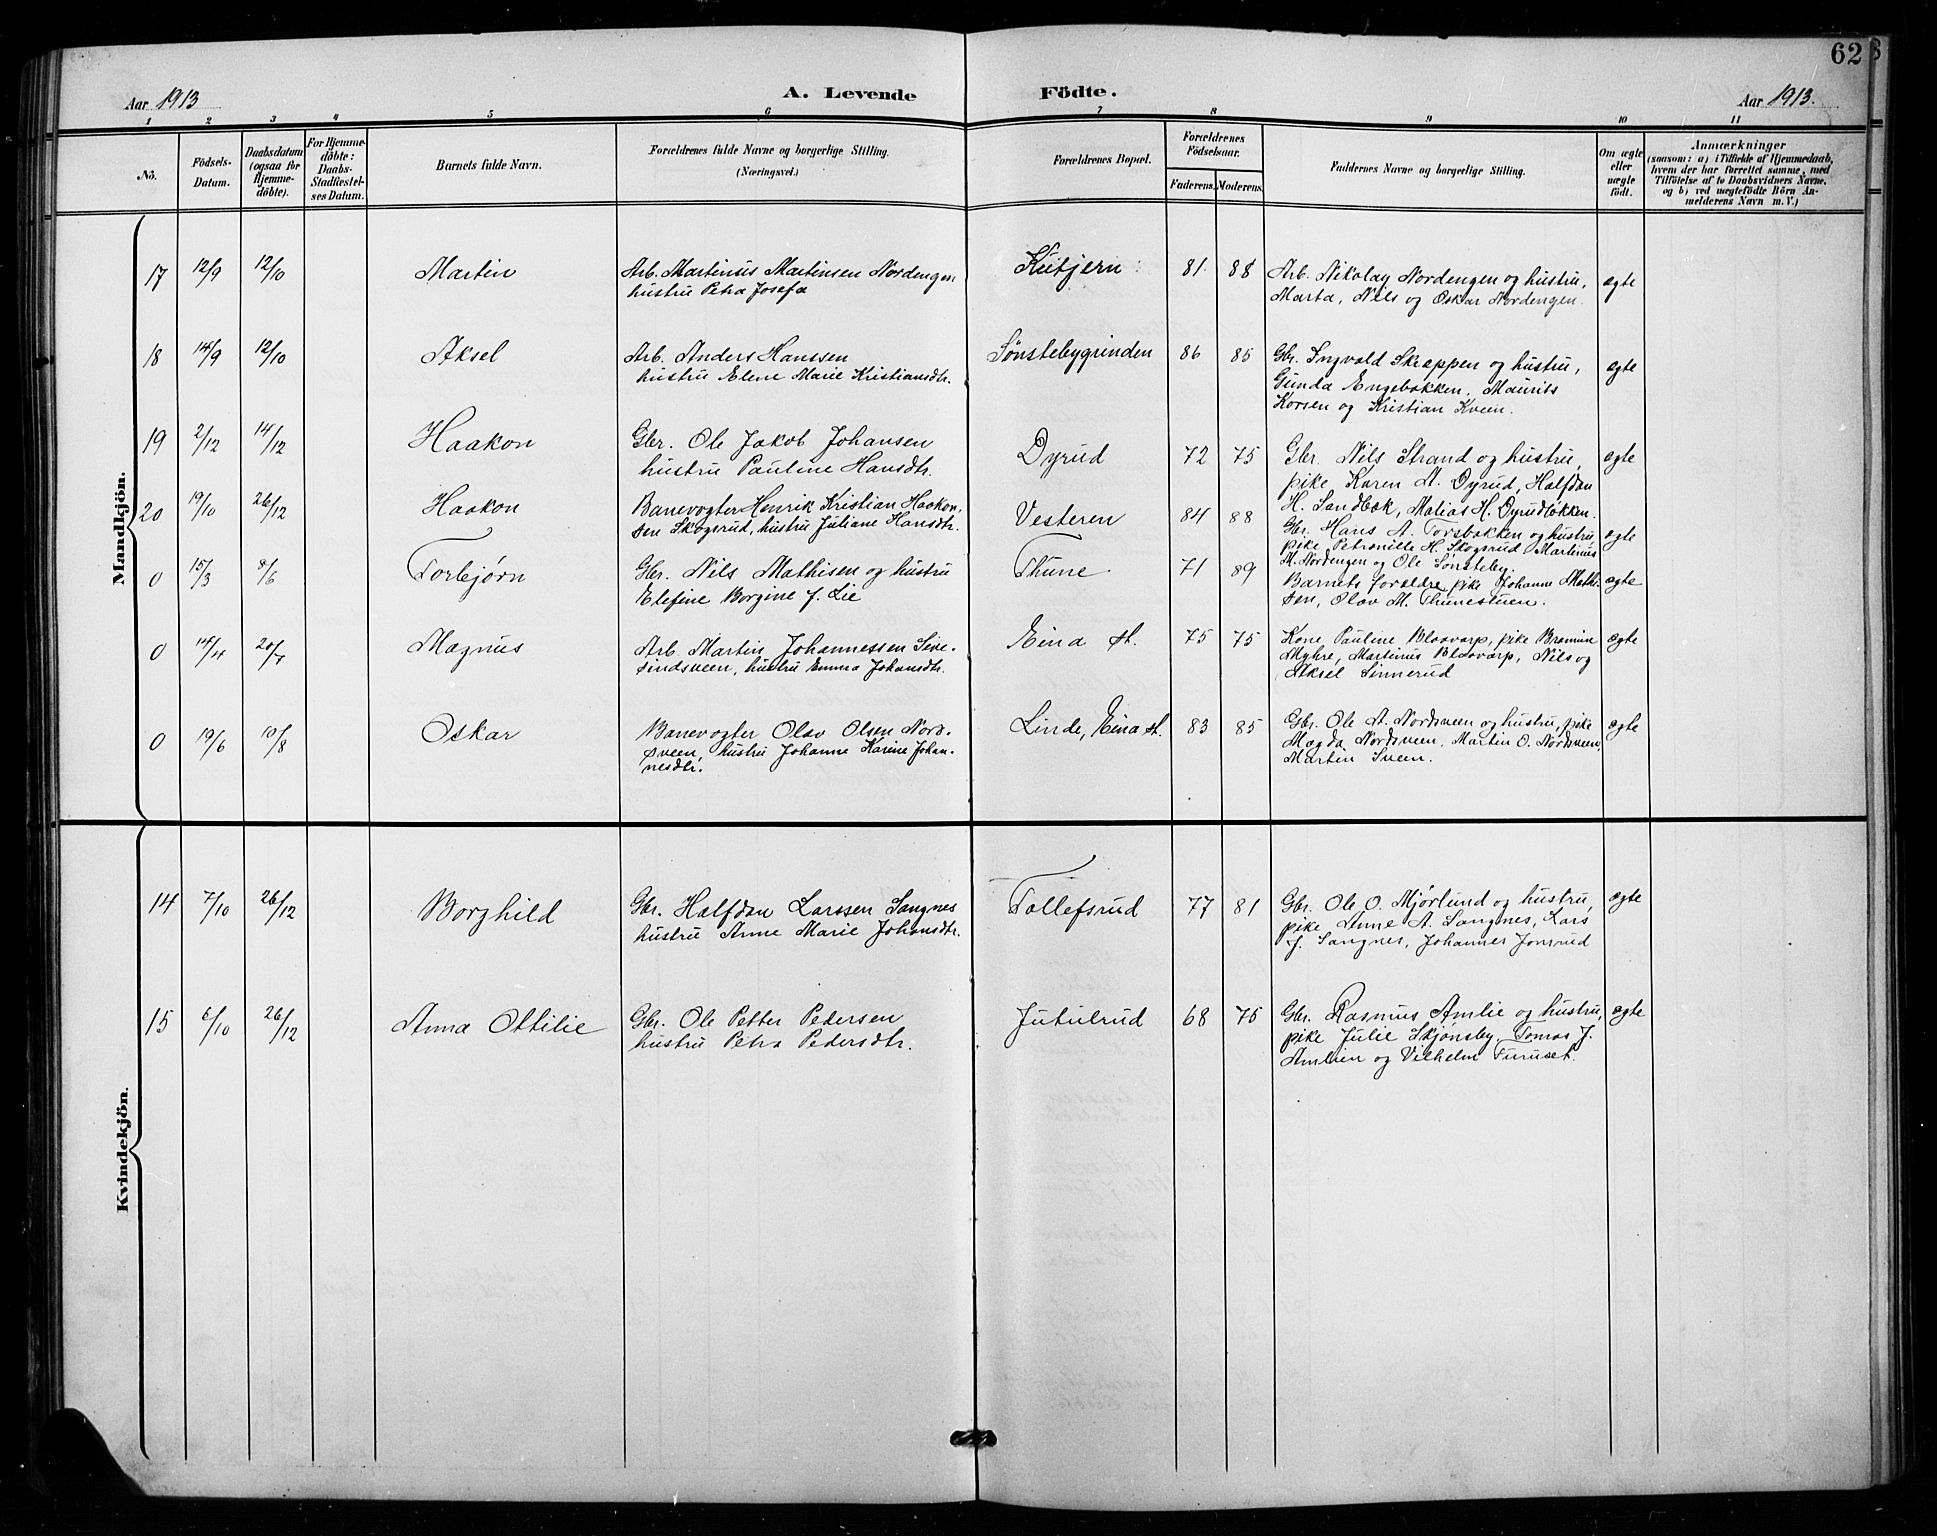 62
Aar 1913
A. Levende Födte.
Aar 1913.
1 2 3 4 5 6 7 8 9 10 11
No.
Födsels-Datum.
Daabsdatum (ogsaa for Hjemme-döbte).
For Hjemme-döbte: Daabs-Stadfæstel-ses Datum.
Barnets fulde Navn.
Forældrenes fulde Navne og borgerlige Stilling.
(Næringsvei.)
Forældrenes Bopæl.
Forældrenes Födselsaar.
Faderens. Moderens.
Faddernes Navne og borgerlige Stilling.
Om ægte eller uægte födt.
Anmærkninger
(saasom: a) i Tilfælde af Hjemmedaab,
hvem der har forrettet samme, med
Tilföielse af to Daabsvidners Navne,
og b) ved uægtefödte Börn An-
melderens Navn m. V.)
Mandkjön.
17 12/9 12/10 Martin Arb. Martinus Martinsen Nordengen
hustru Petra Josefa
Kutjern 81 88 Arb. Nikolay Nordengen og hustru,
Marta, Nils og Oskar Nordengen. ægte
18 14/9 12/10 Aksel Arb. Anders Hanssen
hustru Elene Marie Kristiansdtr.
Sønstebygrinden 86 85 Gbr. Ingvald Skreppen og hustru,
Gunda Engebakken, Maurits
Korsen og Kristian Kvem. ægte
19 2/12 14/12 Haakon Gbr. Ole Jakob Johansen
hustru Pauline Hansdtr.
Dyrud 72 75 Gbr. Nils Strand og hustru,
pike Karen A. Dyrud, Halfdan
H. Sandbæk, Matias H. Dyrudbakken. ægte
20 19/10 26/12 Haakon Banevogter Henrik Kristian Haakon-
sen Skogsrud, hustru Juliane Hansdtr.
Vesteren 84 88 Gbr. Hans A. Torsbakken og hustru,
pike Petronille H. Skogsrud, Martinus
M. Nordengen og Ole Sønsteby. ægte
0 15/3 8/6 Torbjørn Gbr. Nils Mathisen og hustru
Elefine Borgine f. Lie
Thune 71 89 Barnets forældre, pike Johanne Math-
sen, Olav M. Thunestuen. ægte
0 14/4 20/7 Magnus Arb. Martin Johannessen Sive-
sindsveen, hustru Emma Johansdtr.
Eina st. 75 75 Kone Pauline Blaavarp, pike Bramine
Myhre, Martinus Blaavarp, Nils og
Aksel Sinnerud ægte
0 19/6 10/8 Oskar Banevogter Olav Olsen Nord-
sveen, hustru Johanne Karine Johan-
nesdtr.
Linde, Eina st. 83 85 Gbr. Ole A. Nordsveen og hustru, pike
Magda Nordsveen, Martin O. Nordsveen,
Martin Sveen. ægte
Kvindekjön.
14 7/10 26/12 Borghild Gbr. Halfdan Larssen Sangnes
hustru Anne Marie Johansdtr.
Tollefsrud 77 81 Gbr. Ole O. Mjørlund og hustru,
pike Anne A. Sangnes, Lars
J. Sangnes, Johannes Jonsrud ægte
15 6/10 26/12 Anna Ottilie Gbr. Ole Petter Pedersen
hustru Petra Pedersdtr.
Jutulrud 68 75 Gbr. Rasmus Amlie og hustru,
pike Julie Skjønsby, Tomas J.
Amlien og Vilhelm Furuset. ægte